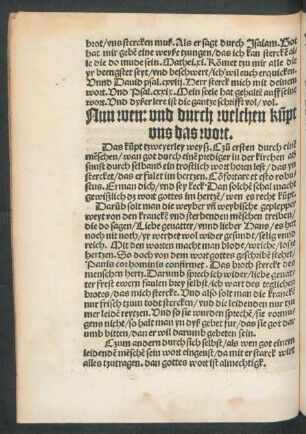 brot/vns stercken muß. Als er sagt durch Jsaiam. Got
hat mir gebē eine weyse zungen/das ich kan stercke al-
le die do mude sein. Mathei.xi. Kömet tzu mir alle die
yr beengstet seyt/vnd beschwert/ich wil euch erquicken.
Vnnd Dauid psal.cxviij. Herr sterck mich mit deinem
wort. Vnd Psal.cxxix. Mein seele hat gehalt auff seine
wort. Vnd dyser lere ist die gantze schrifft vol/vol.
Nun wen: vnd durch welchen kūpt
vns das wort.
Das kūpt tzweyerley weyß. Czū ersten durch eine
mēschen/wan got durch eine prediger in der kirchen ab
sunst durch selband ein trostlich wort horen lest/das yn
stercket/das er fulet im hertzen. Cōfortare et esto robu-
stus. Erman dich/vnd sey keck. Dan solchē schal macht
gewißlich dz wort gottes im hertzē/wen es recht kūpt.
Darūb solt man die weyber vn̄ weybische geplepper
weyt von den kranckē vnd sterbenden mēschen treiben/
die do sagen/Liebe geuatter/vnd lieber Hans/es hat
noch nit noth/yr werdet noch wider gesund/selig vnd
reich. Mit den worten macht man blode/weiche/losze
hertzen. So doch von dem wort gottes geschribē stehet/
Panis cor hominis confirmet. Das broth sterckt des
menschen hertz. Darumb sprech ich wider/liebe geuat-
ter frest ewern faulen brey selbst/ich wart des teglichen
brotes/das mich stercke. Vnd also solt man die krancke
mēsch frölich tzum todt stercken/vnd die leidenden nur tzu
mer leidē reytzen. Vnd so sie wurden sprechē/sie vormu-
gens nicht/so halt man yn dyß gebet fur/das sie got dar
umb bitten/dan er wil darumb gebeten sein.
Czum andern durch sich selbst/als wen got einem
leidendē mēschē sein wort eingeust/da mit er starck wirt
alles tzutragen. dan gottes wort ist almechtigk.